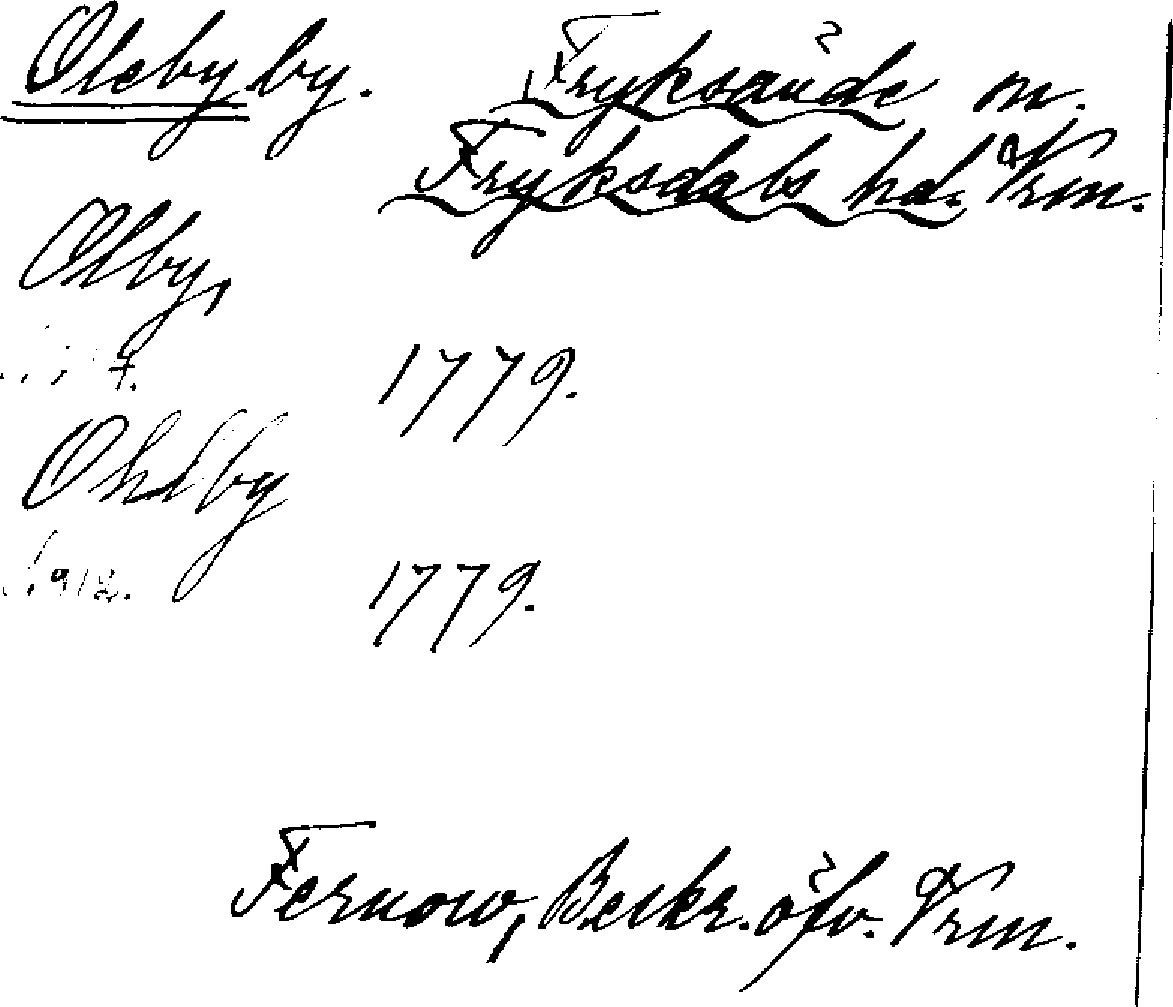 Oleby by. Fryksände m.
Fryksdals hd. Vrm.
Olby,
1779.
Ohlby
s. 912. 1779.
Fernow, Beskr. öfv. Vrm.